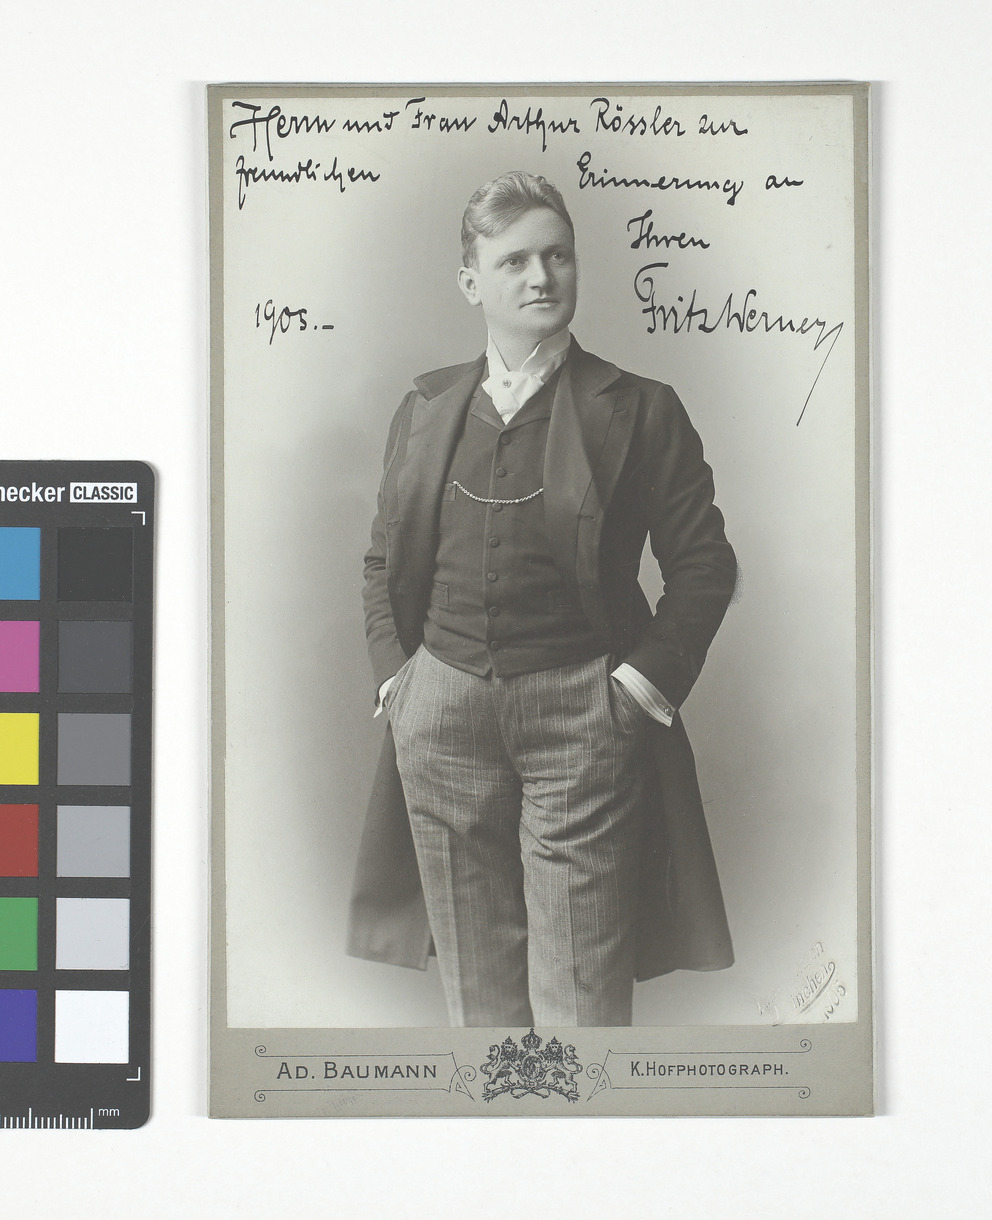 Herrn und Frau Arthur Rössler zur
freundlichen Erinnerung an
Ihren
Fritz Werner
1905.–
AD. BAUMANN K.HOFPHOTOGRAPH.
CLASSIC
mm